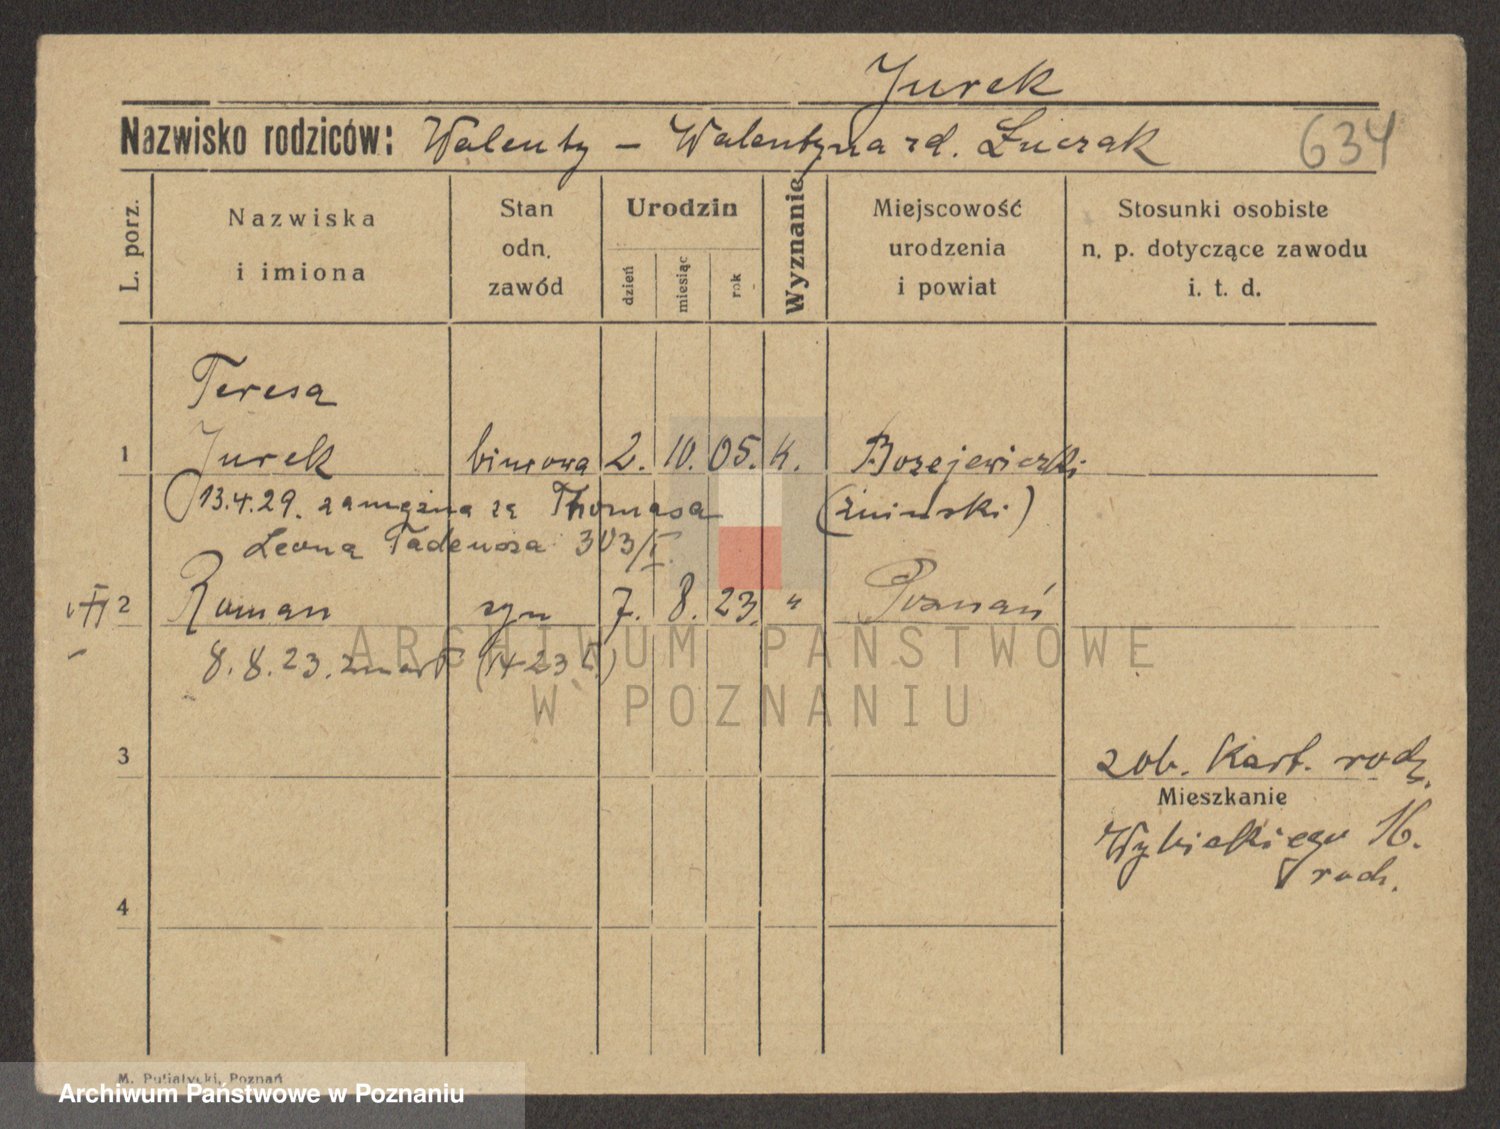 Jurek
Nazwisko rodziców: Walenty - Walentyna rd. Łuczak 634
L. porz.
Nazwiska
i imiona
Stan
odn.
zawód
Urodzin
dzień
miesiąc
rok
Wyznanie
Miejscowość
urodzenia
i powiat
Stosunki osobiste
n. p. dotyczące zawodu
i. t. d.
Teresa
1 Jurek biurowa 2. 10. 05. k. Bożejewiczki
13.4.29. zamężna za Thomasa (żniński)
Leona Tadeusza 303/I
2 Roman syn 7. 8. 23. " Poznań
8. 8. 23. zmarł
ARCHIWUM PAŃSTWOWE
W POZNANIU
3 zob. Kart. rodz.
Mieszkanie
Wybickiego 16.
rodz.
4
M. Putiatycki, Poznań
Archiwum Państwowe w Poznaniu